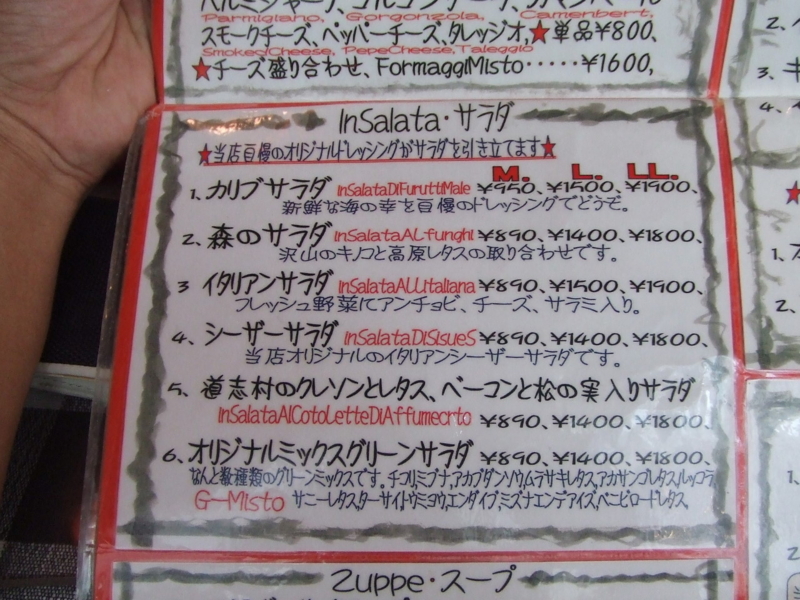 Parmigiano, Gorgonzola, Camembert,
スモークチーズ、ペッパーチーズ、タレッジオ、★単品¥800、
SmokedCheese, PepeCheese, Taleggio
★チーズ盛り合わせ、FormaggiMisto・・・・・¥1600,
InSalata・サラダ
★当店自慢のオリジナルドレッシングがサラダを引き立てます★
M. L. LL.
1、カリブサラダ InSalataDiFuruttiMale ¥950、¥1500、¥1900、
新鮮な海の幸を自慢のドレッシングでどうぞ。
2、森のサラダ InSalataALfunghi ¥890、¥1400、¥1800、
沢山のキノコと高原レタスの取り合わせです。
3 イタリアンサラダ InSalataALLItaliana ¥890、¥1500、¥1900、
フレッシュ野菜にアンチョビ、チーズ、サラミ入り。
4、シーザーサラダ InSalataDiSisueS ¥890、¥1400、¥1800、
当店オリジナルのイタリアンシーザーサラダです。
5、道志村のクレソンとレタス、ベーコンと松の実入りサラダ
InSalataAlCotoLetteDiAffumecrto ¥890、¥1400、¥1800、
6、オリジナルミックスグリーンサラダ ¥890、¥1400、¥1800、
なんと数種類のグリーンミックスです。チコリ、ミブナ、アカブダンソウ、ムラサキレタス、アカサンゴレタス、ルッコラ
G-Misto サニーレタス、ターサイ、トウミョウ、エンダイブ、ミズナ、エンデアイズ、ベニピロードレタス、
Zuppe・スープ